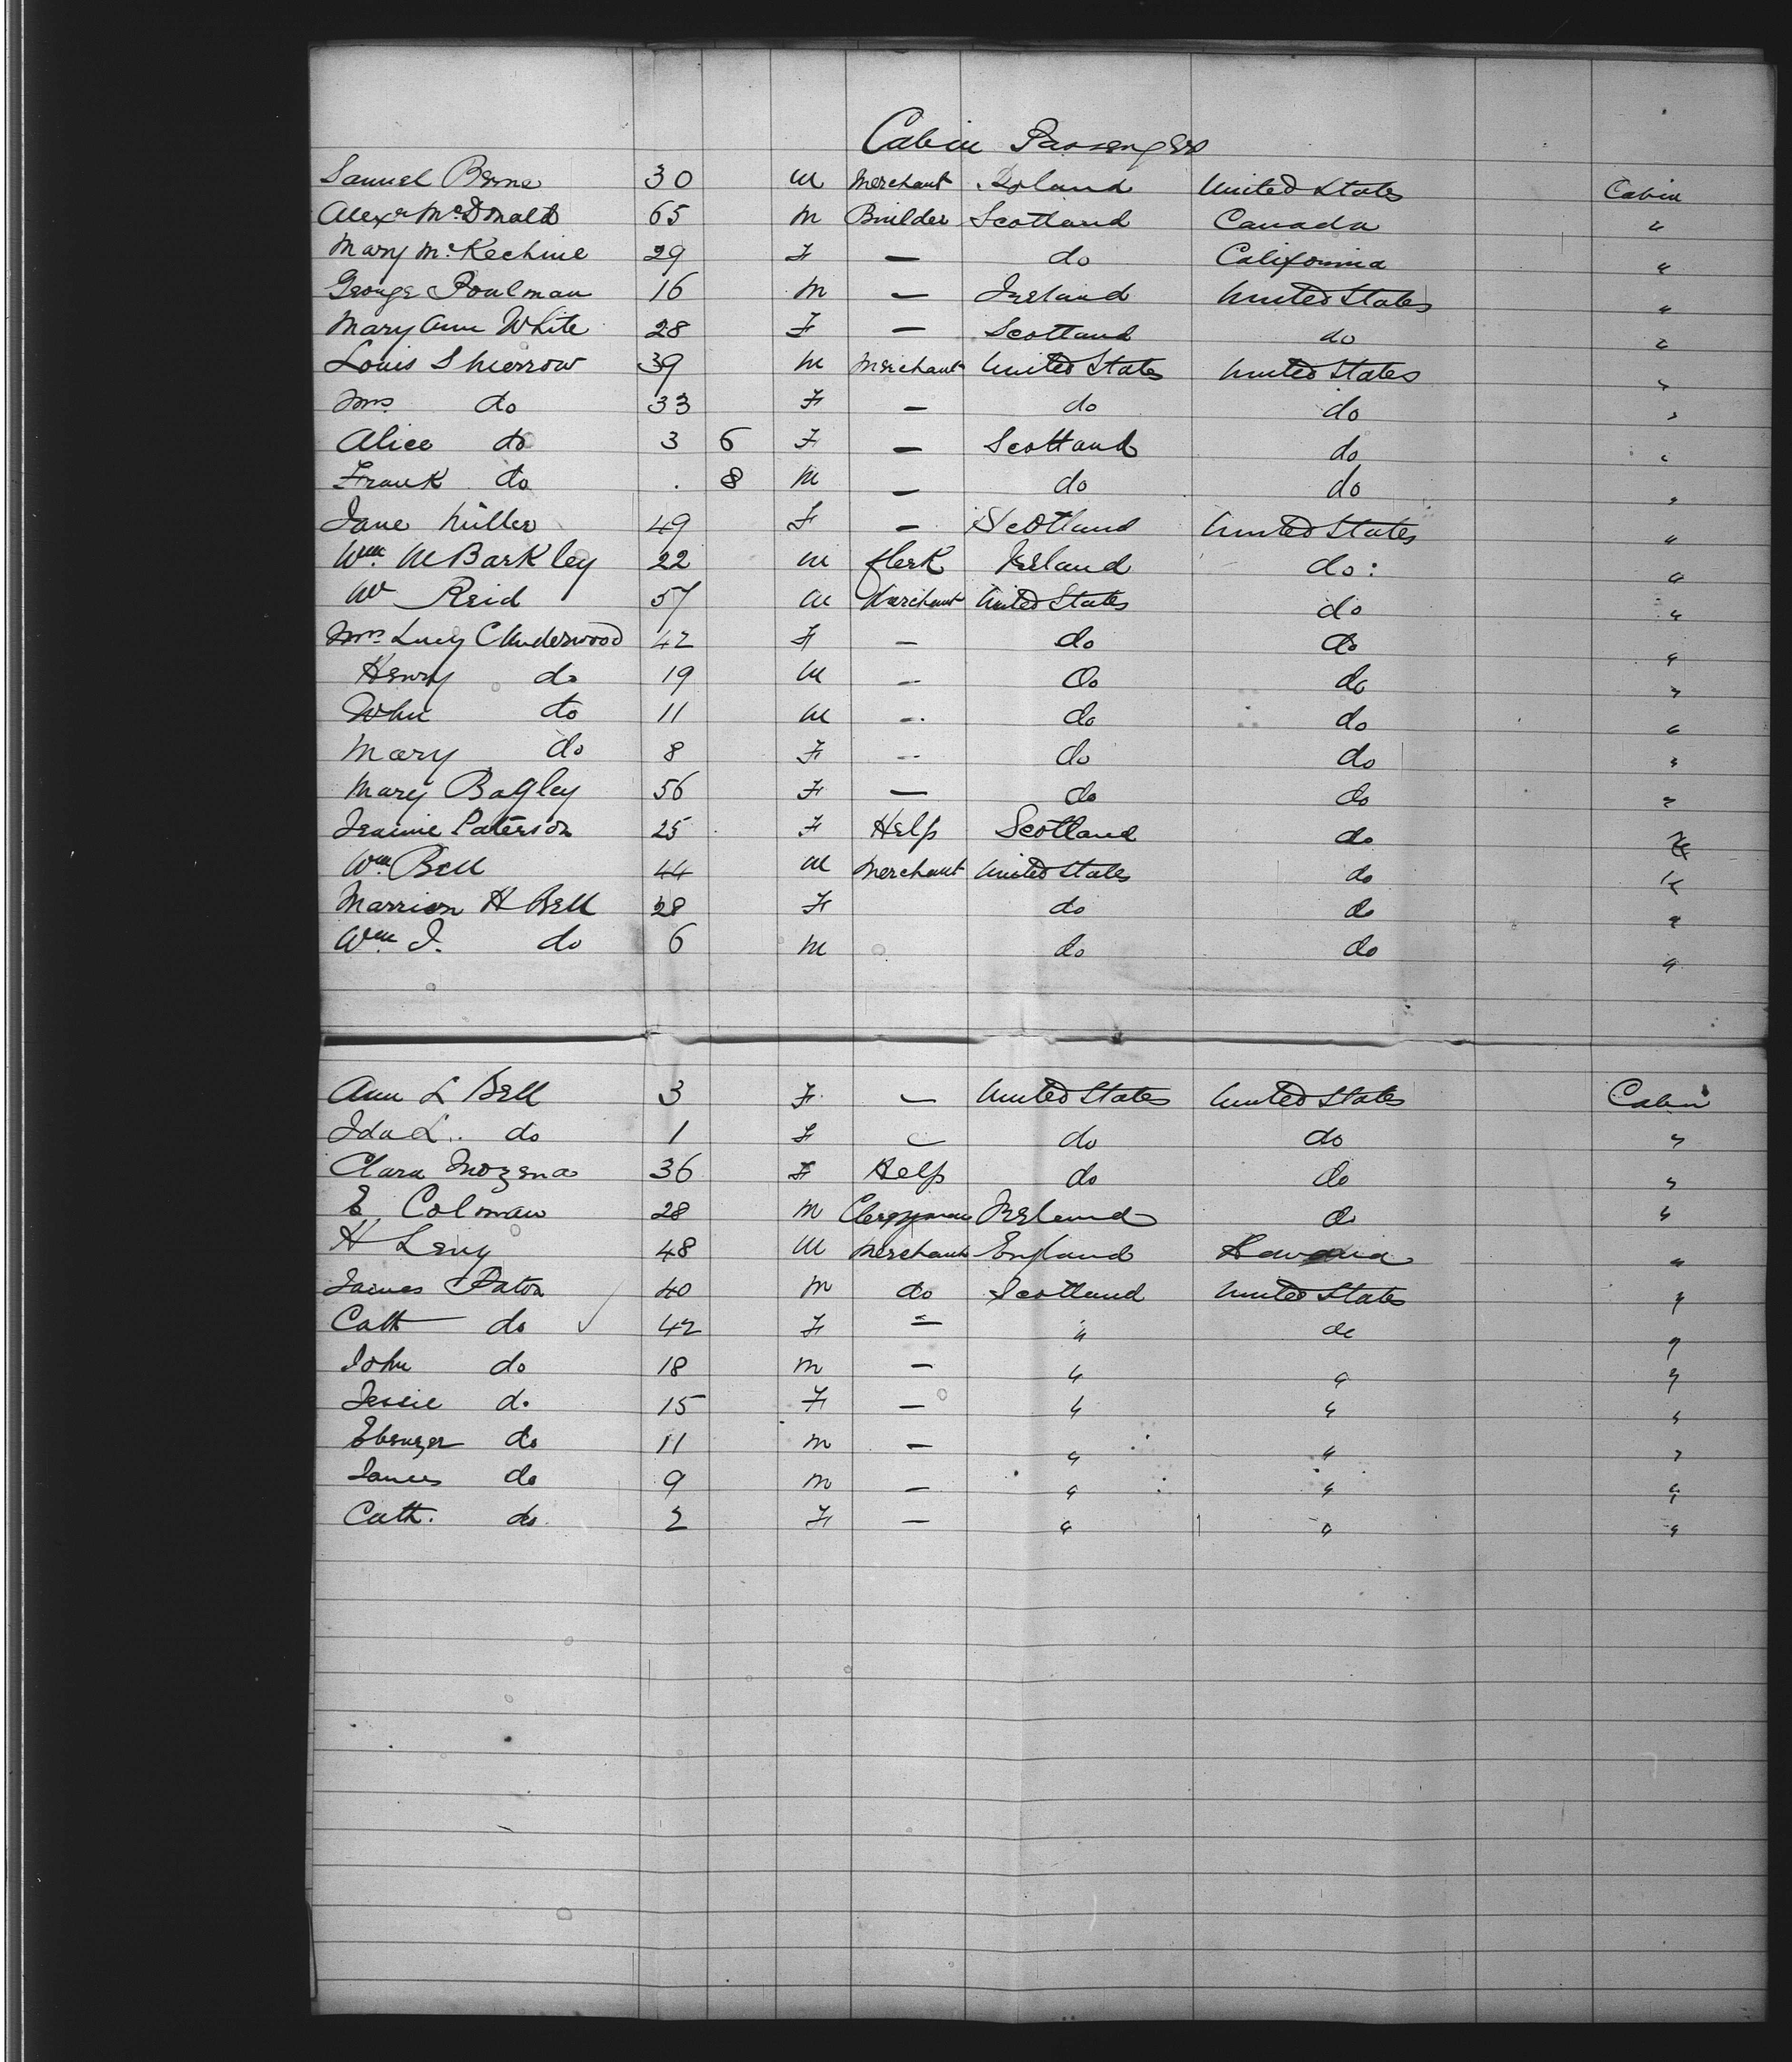 Cabin Passengers
Samuel Berne 30 M Merchant Poland United States Cabin
Alexr McDonald 65 M Builder Scotland Canada "
Mary McKechnie 29 F — do California "
George Poulman 16 M — Ireland United States "
Mary Ann White 28 F — Scotland do "
Louis Sherrow 39 M Merchant United States United States "
Mrs do 33 F — do do "
Alice do 3 6 F — Scotland do "
Frank do . 8 M — do do "
Jane Miller 49 F — Scotland United States "
Wm McBarkley 22 M Clerk Ireland do: "
Wm Reid 57 M Merchant United States do "
Mrs Lucy C Underwood 42 F — do do "
Henry do 19 M — Do do "
John do 11 M — do do "
Mary do 8 F — do do "
Mary Bagley 56 F — do do "
Jeannie Paterson 25 F Help Scotland do "
Wm Bell 44 M Merchant United States do "
Marrion H Bell 28 F do do "
Wm J. do 6 M do do "
Ann L Bell 3 F — United States United States Cabin
Ida L. do 1 F — do do "
Clara Mozena 36 F Help do do "
E Colman 28 M Clergyman Ireland do "
H Levy 48 M Merchant England "
James Paton 40 M do Scotland United States "
Cath do 42 F — " do "
John do 18 M — " " "
Jessie do 15 F — " " "
Ebenezer do 11 M — " " "
James do 9 M — " " "
Cath. do 2 F — " " "